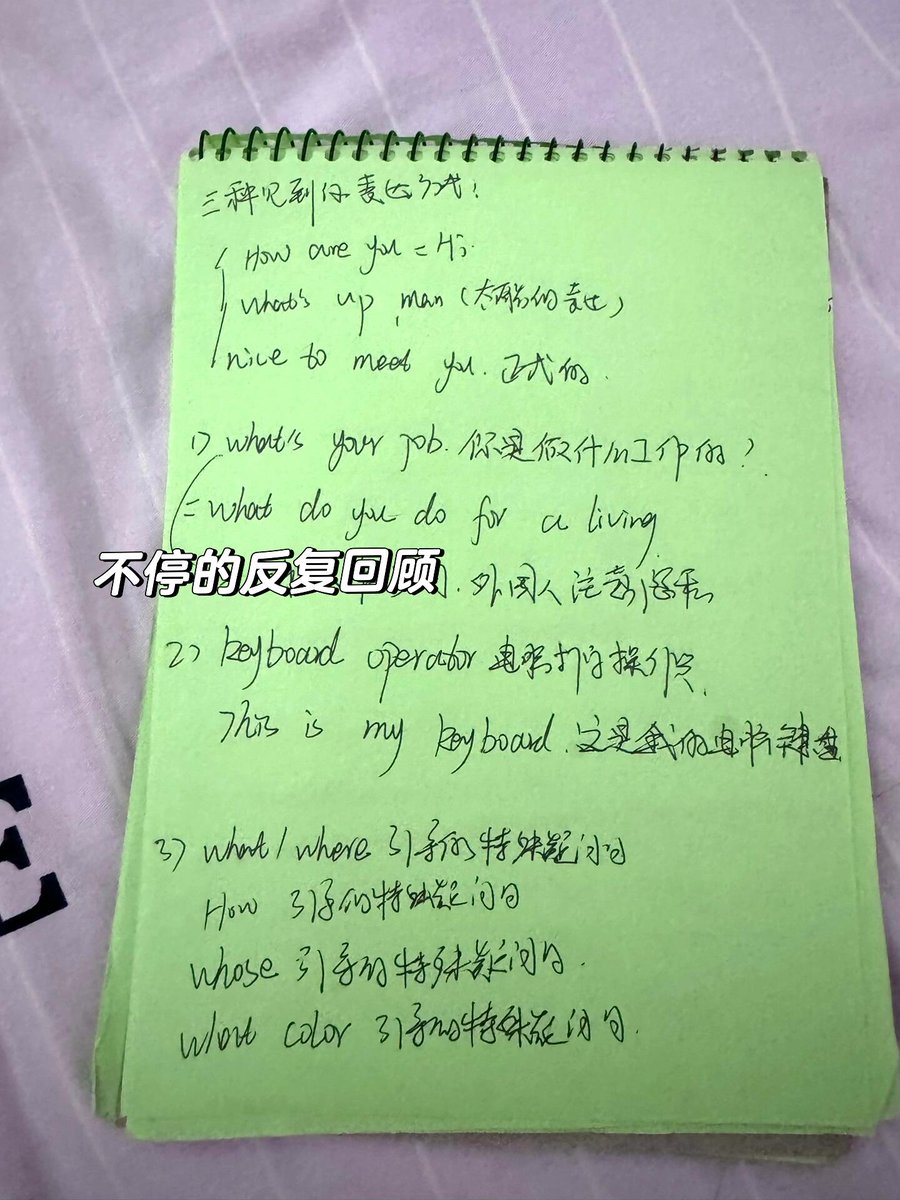 三种见到你表达方式:
How are you = Hi.
what's up, man (太随的表达)
nice to meet you. 正式的.
1) what's your job. 你是做什么工作的?
= what do you do for a living.
不停的反复回顾
. 外国人注意隐私
2) keyboard operator 电脑打字操作员.
This is my keyboard. 这是我的电脑键盘
3) what / where 引导的特殊疑问句
How 引导的特殊疑问句
whose 引导的特殊疑问句.
what color 引导的特殊疑问句.